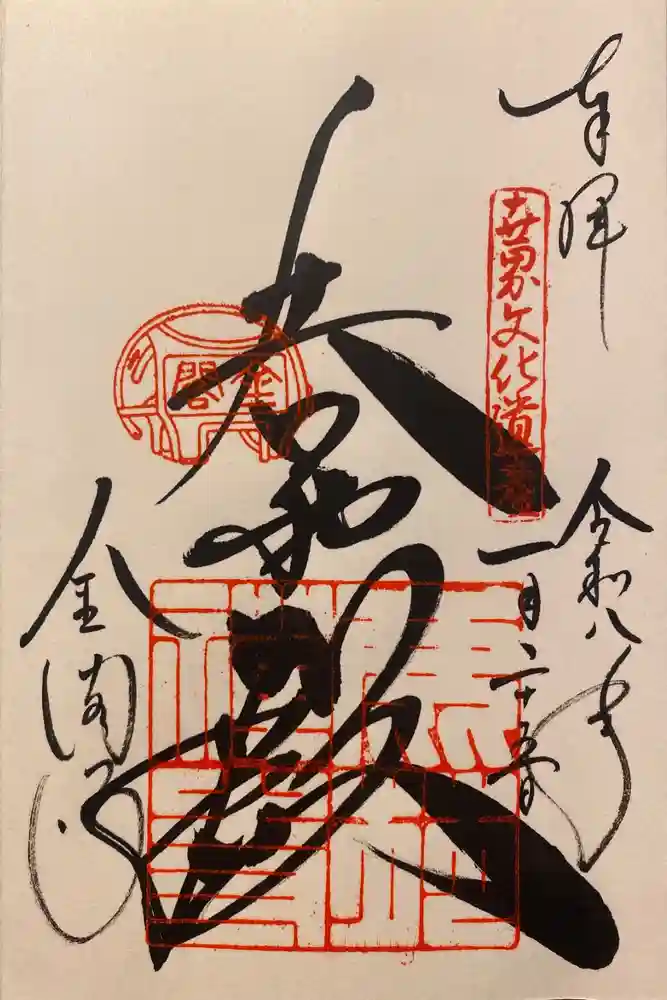 奉拝
世界文化遺産
令和八年
一月二十五日
舎利殿
金閣
金閣寺